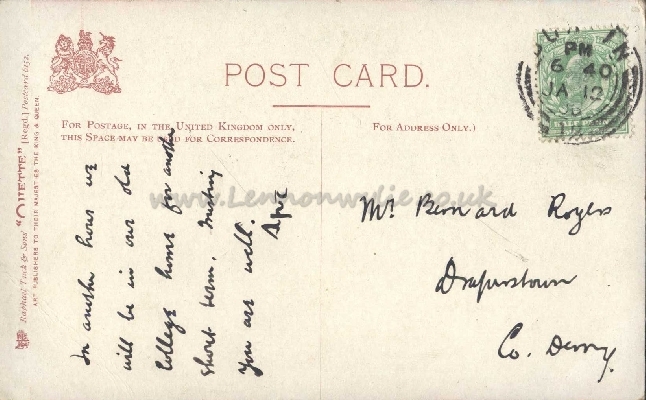 POST CARD.
FOR POSTAGE, IN THE UNITED KINGDOM ONLY,
THIS SPACE MAY BE USED FOR CORRESPONDENCE.
FOR ADDRESS ONLY.)
Raphael Tuck & Sons' "OILETTE" [Regd.] Postcard
ART PUBLISHERS TO THEIR MAJESTIES THE KING & QUEEN.
PM
6 40
JA 12
In another hour we
will be in our old
College home for another
short term. Trusting
you are well.
Mr Bernard Rogers
Draperstown
Co. Derry.
www.Lennonwylie.co.uk